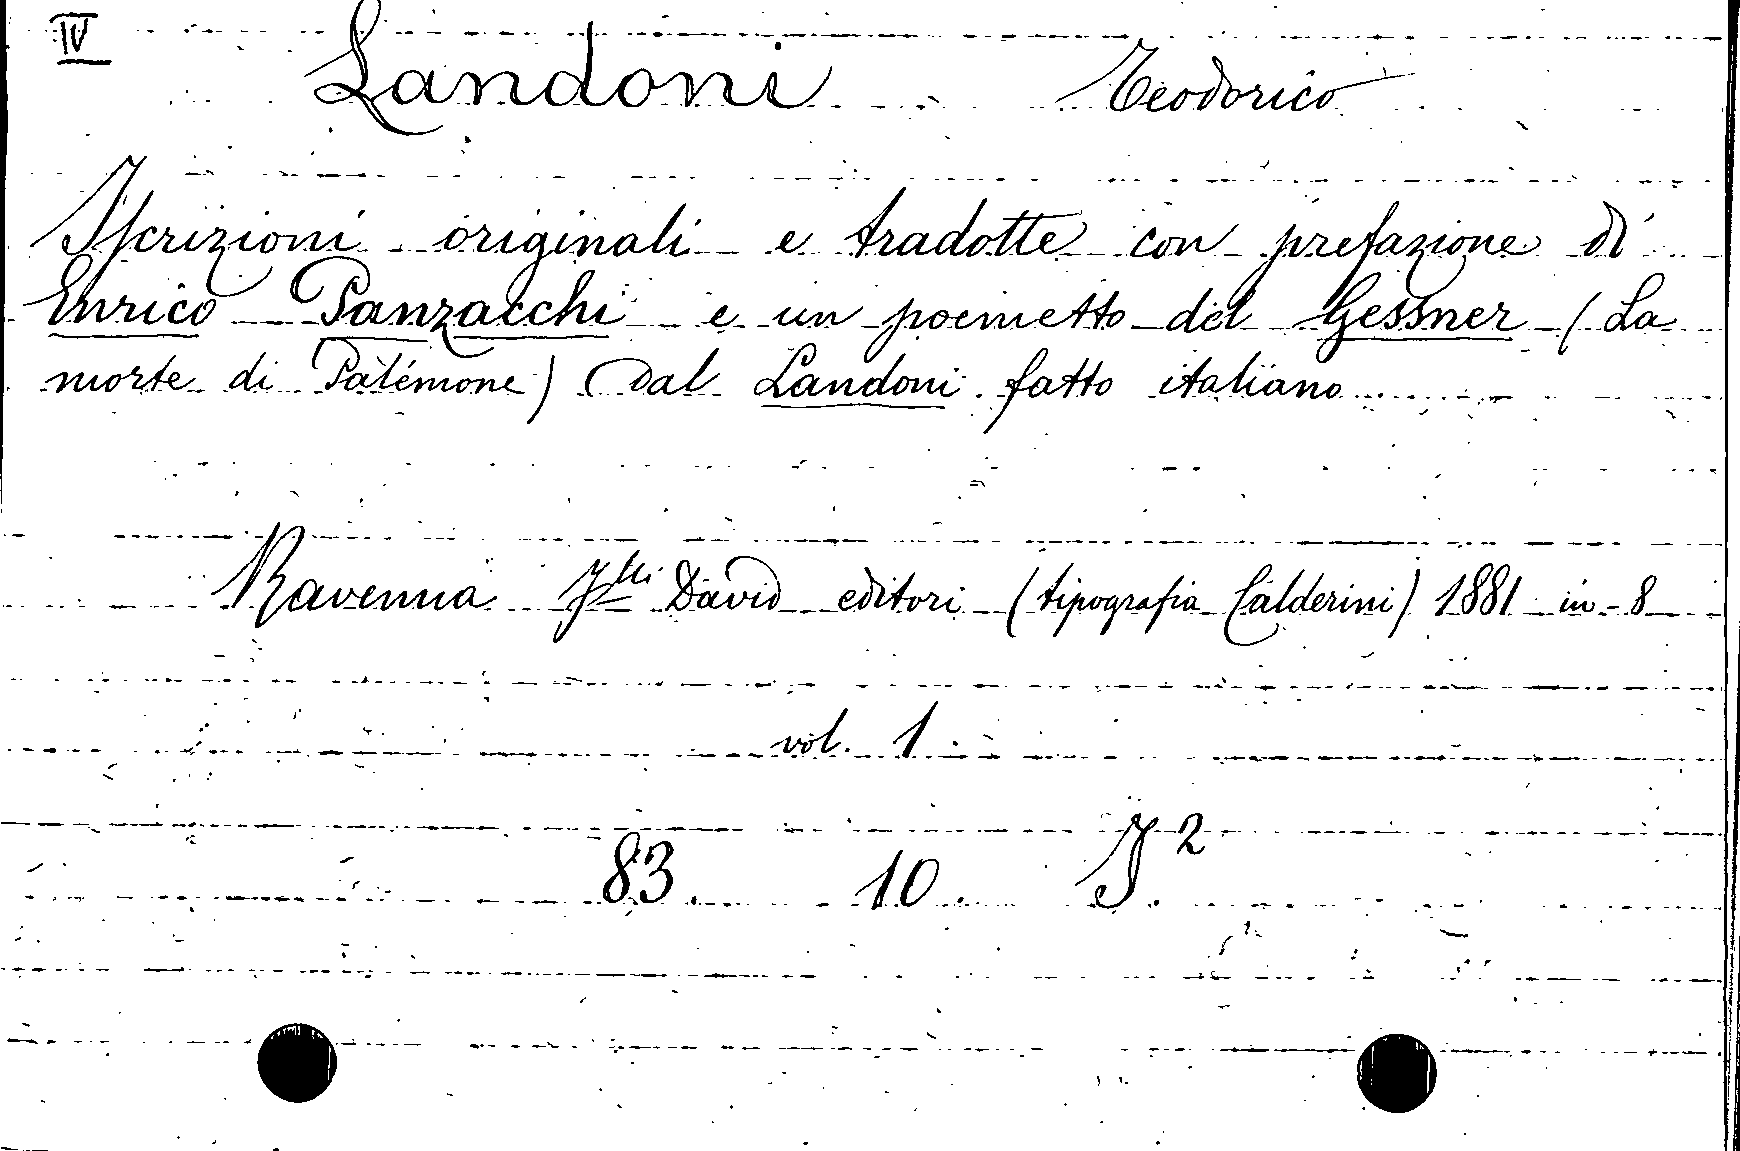 IV
Landoni Teodorico
Iscrizioni originali e tradotte con prefazione di
Enrico Panzacchi e un poemetto del Gessner (La
morte di Palémone) dal Landoni fatto italiano
Ravenna Flli David editori (tipografia Calderini) 1881 in-8
vol. 1.
83. 10. I.2